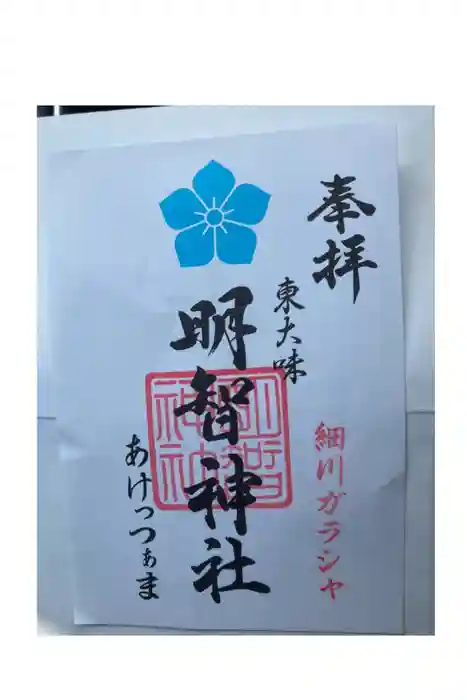 奉拝
東大味
明智神社
細川ガラシャ
あけっつぁま
明智
神社